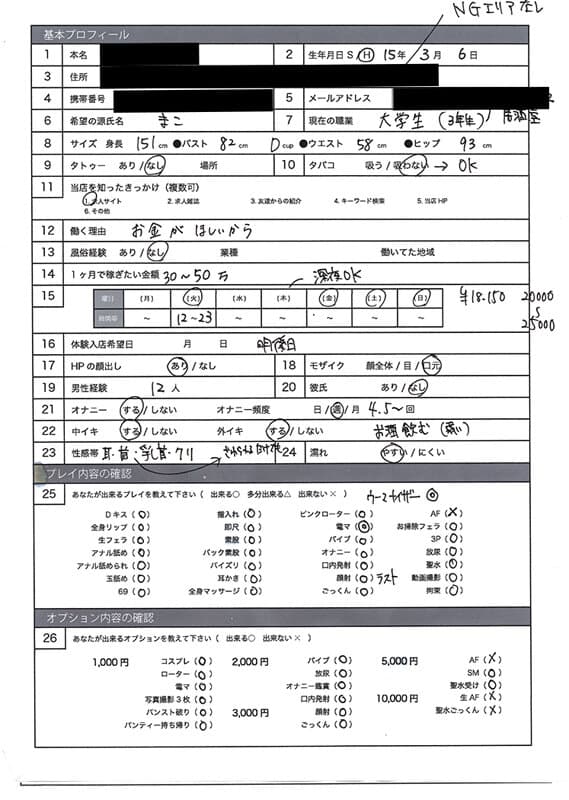 NGエリアなし
基本プロフィール
1 本名
2 生年月日 S / H 15年 3月 6日
3 住所
4 携帯番号
5 メールアドレス
6 希望の源氏名 まこ
7 現在の職業 大学生(3年生) 居酒屋
8 サイズ 身長 151cm ●バスト 82cm Dcup ●ウエスト 58cm ●ヒップ 93cm
9 タトゥー あり/なし 場所
10 タバコ 吸う/吸わない → OK
11 当店を知ったきっかけ(複数可)
1.求人サイト 2.求人雑誌 3.友達からの紹介 4.キーワード検索 5.当店HP
6.その他
12 働く理由 お金がほしいから
13 風俗経験 あり/なし 業種 働いてた地域
14 1ヶ月で稼ぎたい金額 30〜50万 深夜OK
15 曜日 (月) (火) (水) (木) (金) (土) (日) ¥18.150 20000
時間帯 ~ 12~23 ~ ~ ~ ~ ~ 25000
16 体験入店希望日 月 日
17 HPの顔出し あり/なし
18 モザイク 顔全体/目/口元
19 男性経験 12人
20 彼氏 あり/なし
21 オナニー する/しない オナニー頻度 日/週/月 4.5〜回
22 中イキ する/しない 外イキ する/しない お酒飲む(弱い)
23 性感帯 耳・首・乳首・クリ
24 濡れ やすい/にくい
プレイ内容の確認
25 あなたが出来るプレイを教えて下さい (出来る○ 多分出来る△ 出来ない×) ウーマナイザー◎
Dキス(○) 指入れ(○) ピンクローター(○) AF(×)
全身リップ(○) 即尺(○) 電マ(◎) お掃除フェラ(○)
生フェラ(○) 素股(○) バイブ(○) 3P(○)
アナル舐め(○) バック素股(○) オナニー(○) 放尿(○)
アナル舐められ(○) パイズリ(○) 口内発射(○) 聖水(○)
玉舐め(○) 耳かき(○) 顔射(○)ラスト 動画撮影(○)
69(○) 全身マッサージ(○) ごっくん(○) 拘束(○)
オプション内容の確認
26 あなたが出来るオプションを教えて下さい (出来る○ 出来ない×)
1,000円 コスプレ(○) 2,000円 バイブ(○) 5,000円 AF(×)
ローター(○) 放尿(○) SM(○)
電マ(○) オナニー鑑賞(○) 聖水受け(○)
写真撮影3枚(○) 口内発射(○) 10,000円 生AF(×)
パンスト破り(○) 3,000円 顔射(○) 聖水ごっくん(×)
パンティー持ち帰り(○) ごっくん(○)